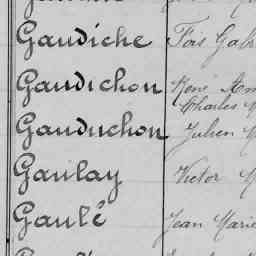 Gaudiche Fois Gab
Gaudichon René Am
Charles M
Gauduchon Julien M
Gaulay Victor M
Gaulé Jean Marie